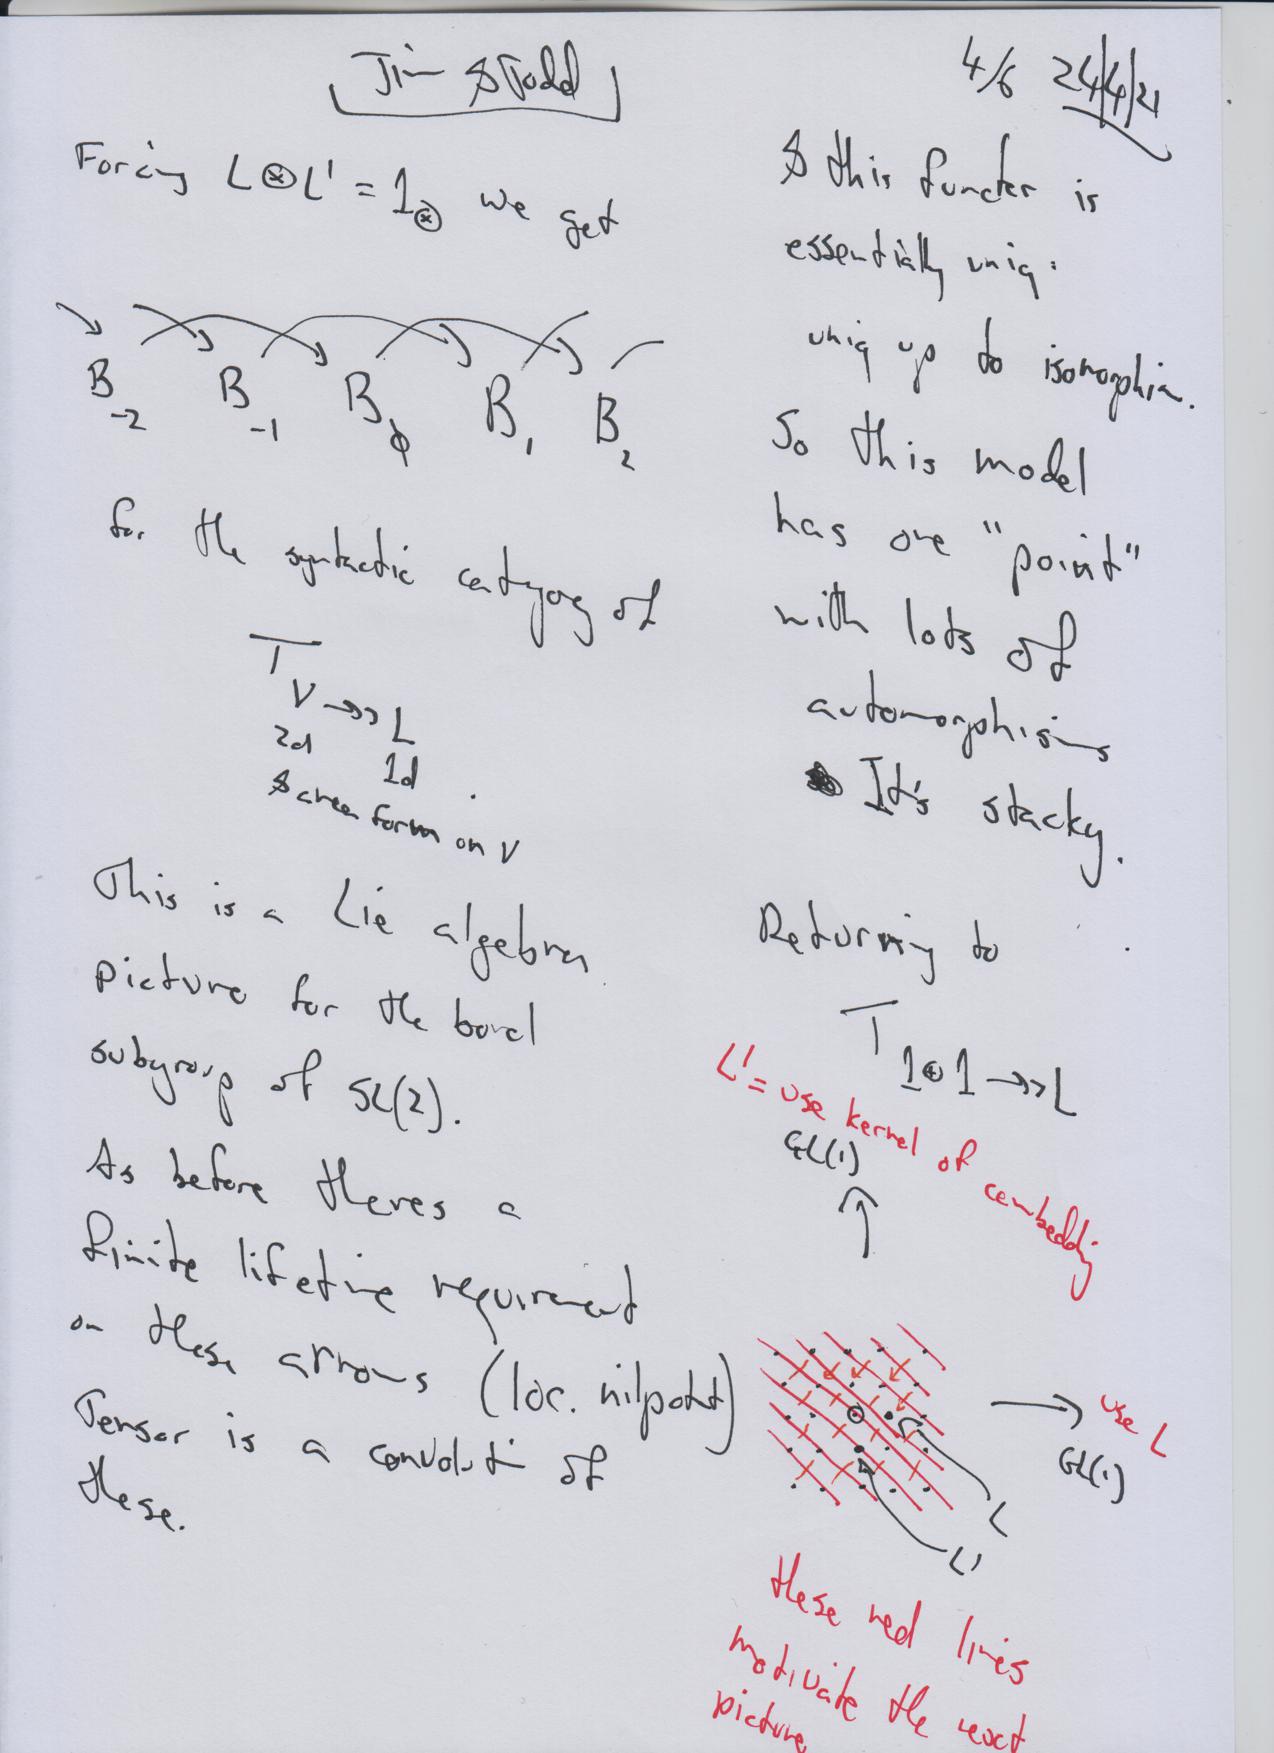 Jim & Todd
4/6 24/4/21
Forcing L⊗L' = 1⊗ we get
B-2 B-1 B0 B1 B2
for the syntactic category of
T
V →» L
2d 1d
& area form on V
This is a Lie algebra
picture for the borel
subgroup of SL(2).
As before theres a
finite lifetime requirement
on these arrows (loc. nilpotnt)
Tensor is a convoluti of
these.
& this functor is
essentially uniq:
uniq up to isomorphism.
So this model
has one "point"
with lots of
automorphisms
It's stacky.
Returning to
T
1⊕1 →» L
L' = use kernel of embedding
GL(1)
use L
GL(1)
L
L'
these red lines
motivate the next
picture